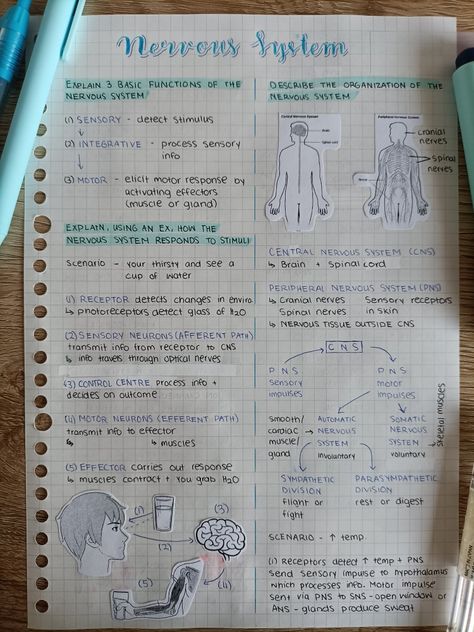 Nervous System
EXPLAIN 3 BASIC FUNCTIONS OF THE
NERVOUS SYSTEM
(1) SENSORY - detect stimulus
(2) INTEGRATIVE - process sensory
info
(3) MOTOR - elicit motor response by
activating effectors
(muscle or gland)
EXPLAIN, USING AN EX, HOW THE
NERVOUS SYSTEM RESPONDS TO STIMULI
Scenario - your thirsty and see a
cup of water
(1) RECEPTOR detects changes in enviro.
↳ photoreceptors detect glass of H2O
(2) SENSORY NEURONS (AFFERENT PATH)
transmit info from receptor to CNS
↳ info travels through optical nerves
(3) CONTROL CENTRE process info +
decides on outcome
(4) MOTOR NEURONS (EFFERENT PATH)
transmit info to effector
↳ muscles
(5) EFFECTOR carries out response
↳ muscles contract + you grab H2O
(1)
(2)
(3)
(4)
(5)
DESCRIBE THE ORGANIZATION OF THE
NERVOUS SYSTEM
Central Nervous System
Brain
Spinal cord
Peripheral Nervous System
cranial
nerves
spinal
nerves
CENTRAL NERVOUS SYSTEM (CNS)
↳ Brain + Spinal cord
PERIPHERAL NERVOUS SYSTEM (PNS)
↳ Cranial nerves Sensory receptors
Spinal nerves in skin
↳ NERVOUS TISSUE OUTSIDE CNS
CNS
PNS
sensory
impulses
PNS
motor
impulses
smooth/
cardiac
muscle/
gland
AUTOMATIC
NERVOUS
SYSTEM
involuntary
SOMATIC
NERVOUS
SYSTEM
voluntary
skeletal muscles
SYMPATHETIC
DIVISION
flight or
fight
PARASYMPATHETIC
DIVISION
rest or digest
SCENARIO - ↑ temp
(1) receptors detect ↑ temp + PNS
Send Sensory impulse to hypothalamus
which processes info. Motor impulse
sent via PNS to SNS - open window or
ANS - glands produce sweat